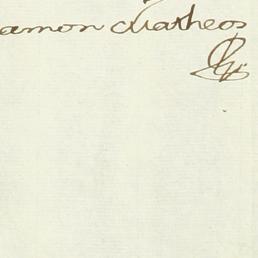 amon Matheos